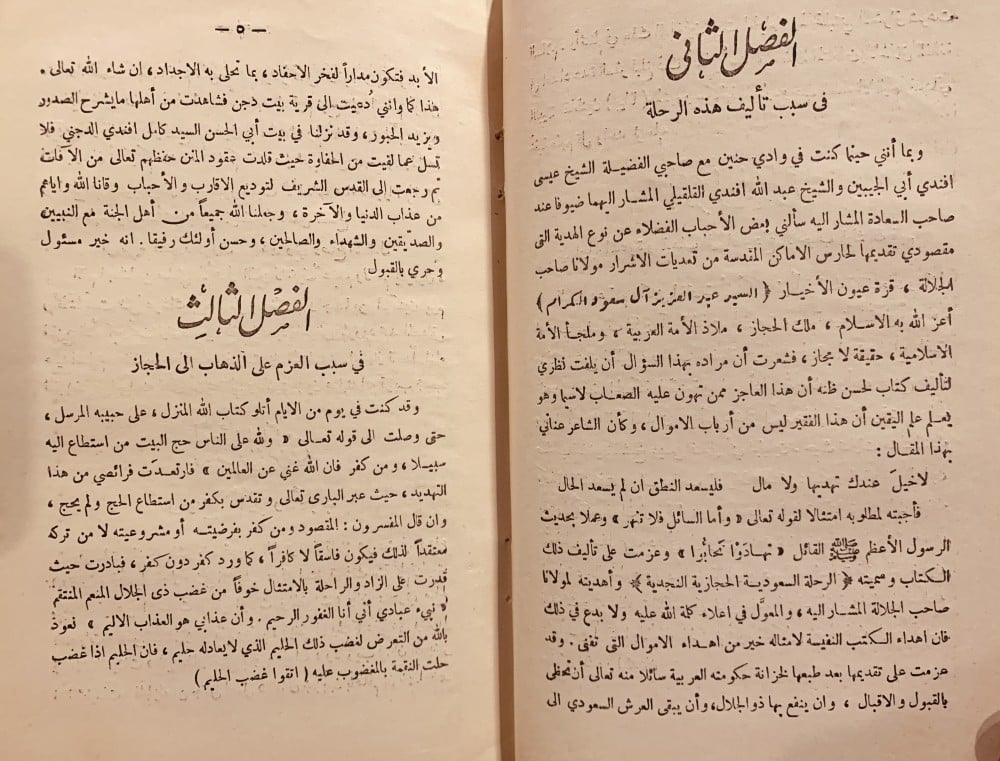 الفصل الثاني
في سبب تأليف هذه الرحلة
وبما أنني حينما كنت في وادي حنين مع صاحبي الفضيلة الشيخ عيسى
افندي أبي الجبيين والشيخ عبد الله افندي القلقيلي المشار اليهما ضيوفا عند
صاحب السعادة المشار اليه سألني بعض الأحباب الفضلاء عن نوع الهدية التى
مقصودي تقديمها لحارس الاماكن المقدسة من تعديات الاشرار مولانا صاحب
الجلالة ، قرة عيون الأخيار ﴿ السيد عبد العزيز آل سعود الكرام ﴾
أعز الله به الاسلام ، ملك الحجاز ، ملاذ الأمة العربية ، وملجأ الأمة
الاسلامية ، حقيقة لا مجاز ، فشعرت أن مراده بهذا السؤال أن يلفت نظري
لتأليف كتاب لحسن ظنه أن هذا العاجز ممن تهون عليه الصعاب لاسيا وهو
يعلم علم اليقين أن هذا الفقير ليس من أرباب الاموال ، وكأن الشاعر عناني
بهذا المقال :
لاخيل عندك تهديها ولا مال فليسعد النطق ان لم يسعد الحال
فأجبته لمطلوبه امتثالا لقوله تعالى « وأما السائل فلا تنهر » وعملا بحديث
الرسول الأعظم ﷺ القائل « تهادَوْا تحابُّوا » وعزمت على تأليف ذلك
الكتاب وسميته ﴿ الرحلة السعودية الحجازية النجدية ﴾ وأهدينه لمولانا
صاحب الجلالة المشار اليه ، والمعوّل في اعلاء كلمة الله عليه ولا بدع في ذلك
فان اهداء الكتب النفيسة لامثاله خير من اهداء الاموال التى تفنى . وقد
عزمت على تقديمها بعد طبعها لخزانة حكومته العربية سائلا منه تعالى أن تحظى
بالقبول والاقبال ، وان ينفع بها ذو الجلال، وأن يبقى العرش السعودي الى
— ٥ —
الأبد فتكون مداراً لفخر الاحفاد ، بما تحلى به الاجداد ، ان شاء الله تعالى .
هذا كما وانني دُعيت الى قرية بيت دجن فشاهدت من أهلها مايشرح الصدور
ويزيد الحبور ، وقد نزلنا في بيت أبي الحسن السيد كامل افندي الدجني فلا
تسل عما لقيت من الحفاوة حيث قلدت عقود المنن حفظهم تعالى من الآفات
ثم رجعت إلى القدس الشريف لتوديع الاقارب والأحباب وقانا الله واياهم
من عذاب الدنيا والآخرة ، وجعلنا الله جميعاً من أهل الجنة مع النبيين
والصدّيقين والشهداء والصالحين ، وحسن أولئك رفيقا . انه خير مسئول
وحري بالقبول
الفصل الثالث
في سبب العزم على الذهاب الى الحجاز
وقد كنت في يوم من الايام أتلو كتاب الله المنزل ، على حبيبه المرسل ،
حتى وصلت الى قوله تعالى « ولله على الناس حج البيت من استطاع اليه
سبيلا ، ومن كفر فان الله غني عن العالمين » فارتعدت فرائصي من هذا
التهديد ، حيث عبر البارى تعالى وتقدس بكفر من استطاع الحج ولم يحج ،
وان قال المفسرون : المقصود ومن كفر بفرضيته أو مشروعيته لا من تركه
معتقداً لذلك فيكون فاسقاً لا كافراً ، كما ورد كفر دون كفر ، فبادرت حيث
قدرت على الزاد والراحلة بالامتثال خوفاً من غضب ذى الجلال المنعم المنتقم
« نبيء عبادي أني أنا الغفور الرحيم . وأن عذابي هو العذاب الاليم » نعوذ
بالله من التعرض لغضب ذلك الحليم الذي لا يعادله حليم ، فان الحليم اذا غضب
حلت النقمة بالمغضوب عليه ( اتقوا غضب الحليم )